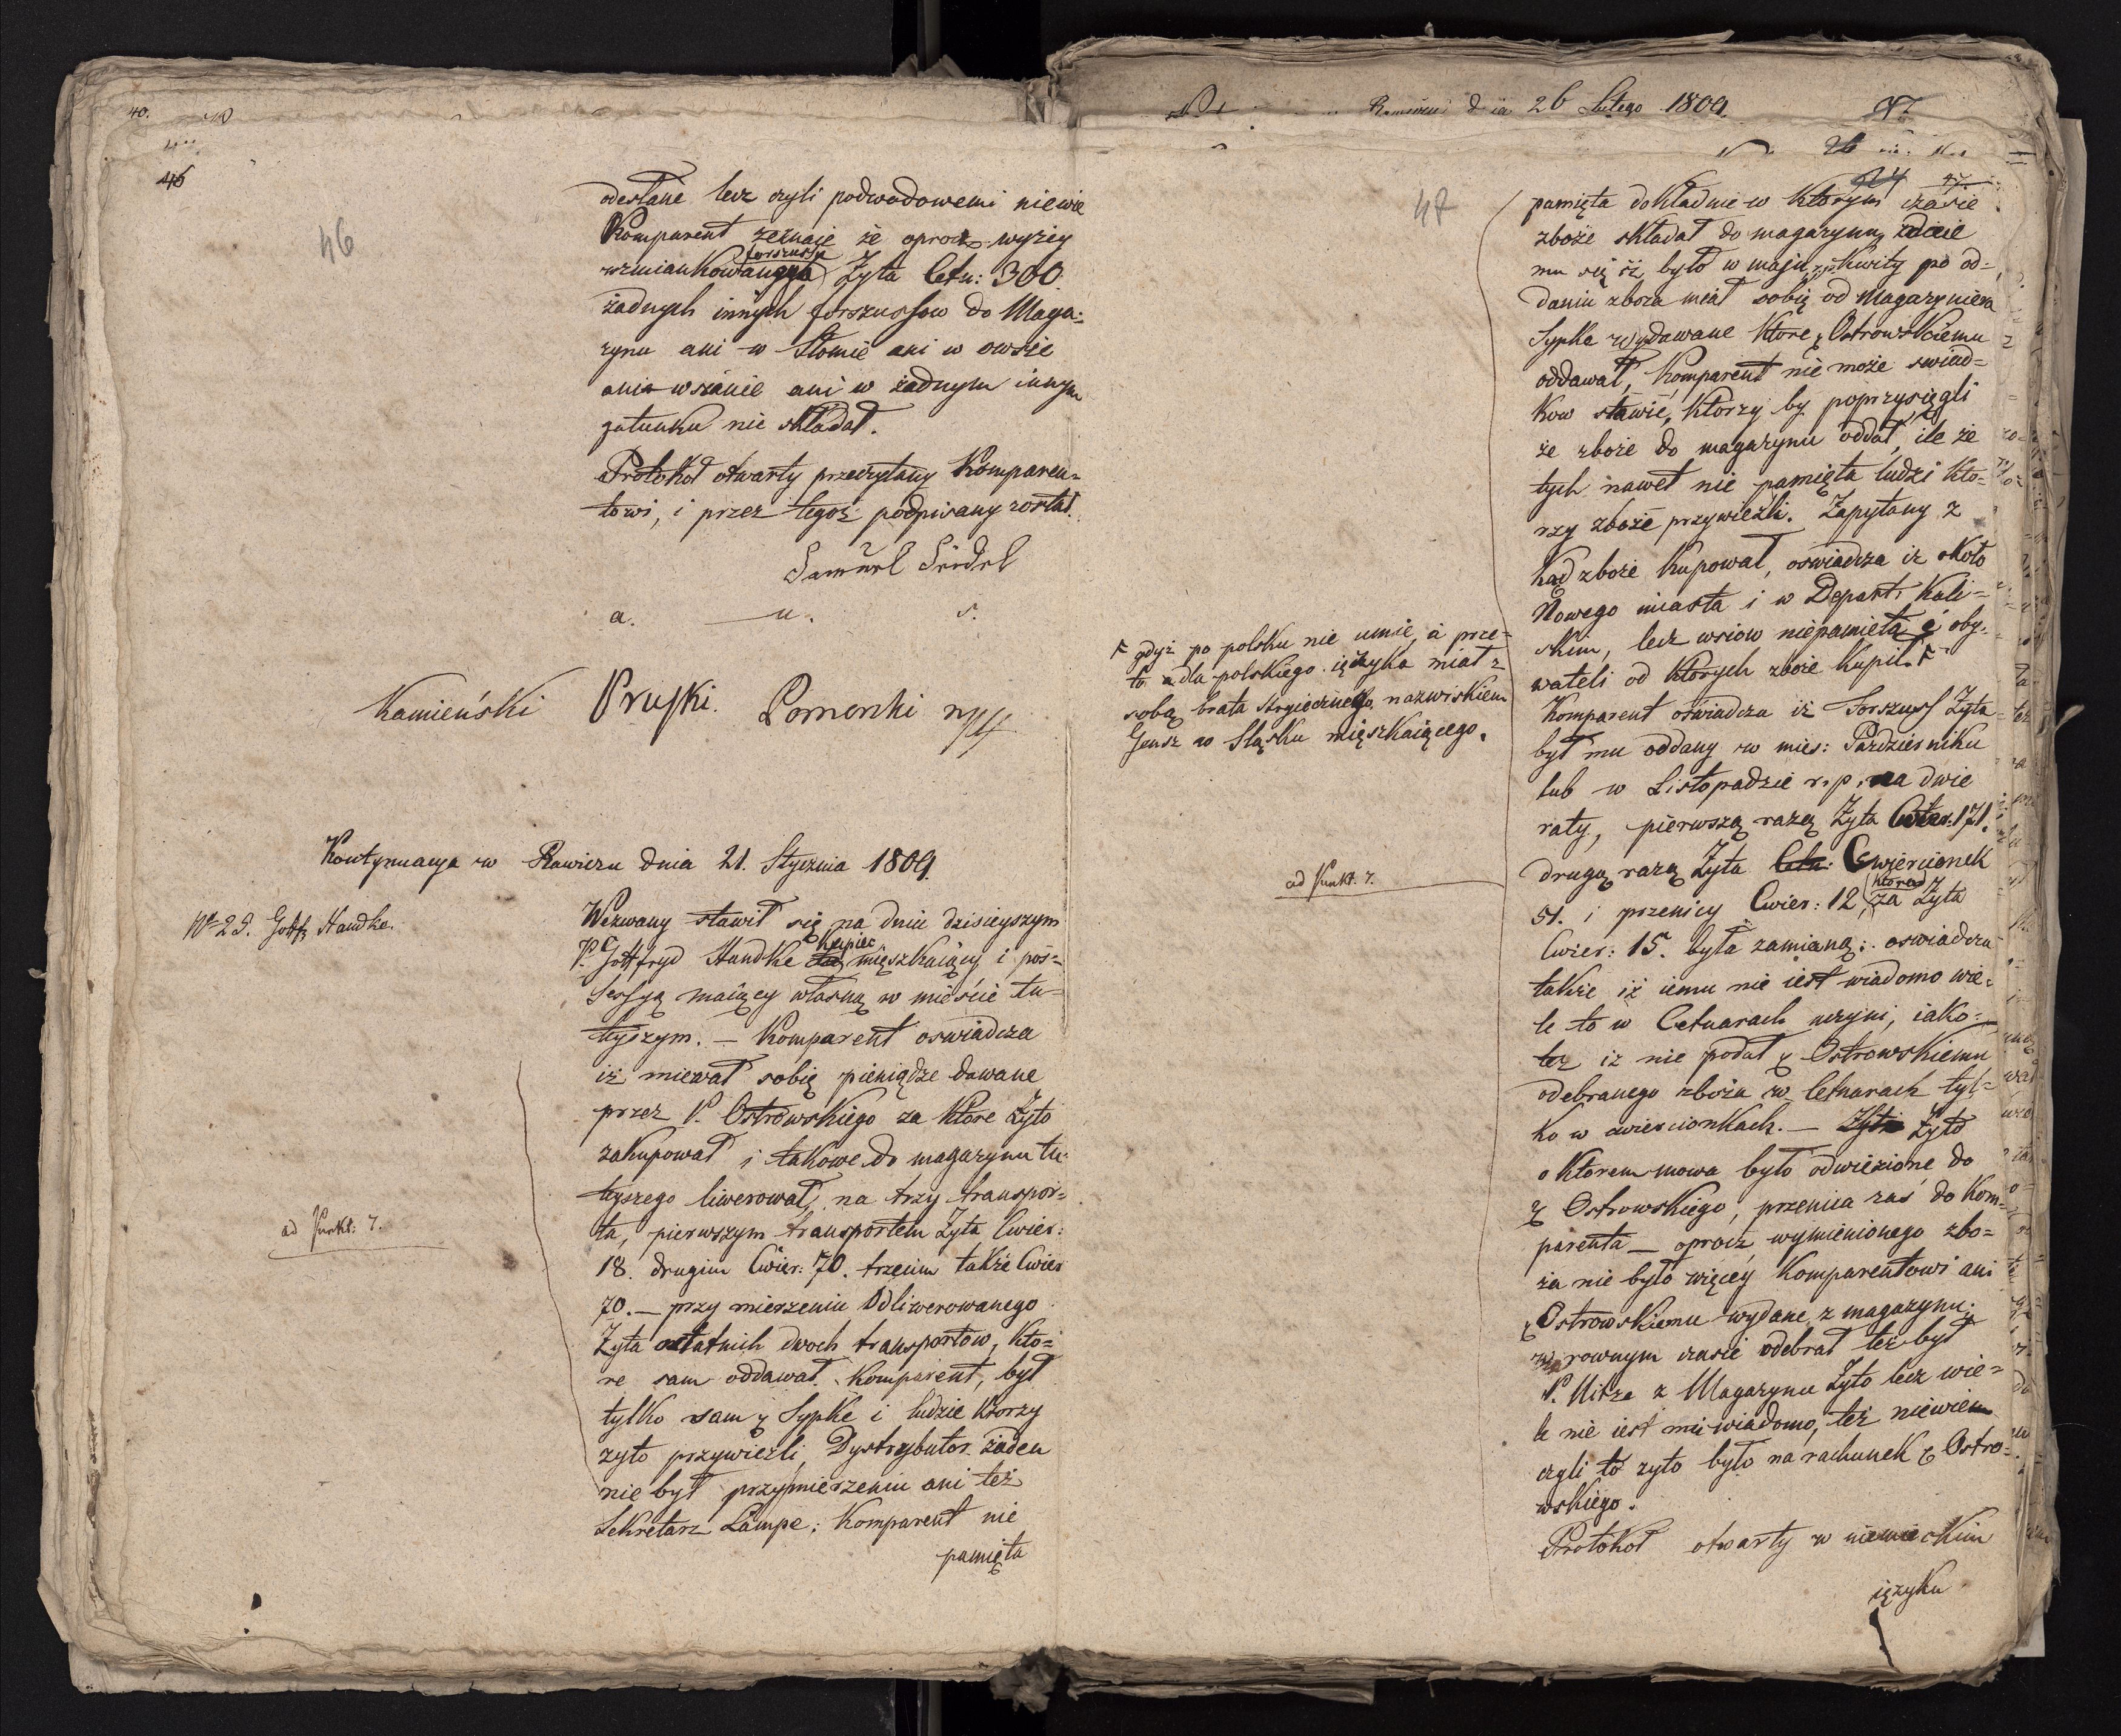 40.
46
46
odesłane lecz czyli podwodowemi niewie
Komparent zeznaie że oprocz wyżey
forszussu
wzmiankowanego Zyta Cetn: 300
żadnych innych forszussow do Maga-
zynu ani w Słomie ani w owsie
ani w sianie ani w żadnym innym
gatunku nie składał.
Protokoł otwarty przeczytany Komparen-
towi, i przez tegoż podpisany został.
Samuel Seidel
a. u. s.
Kamieński Pruski. Pomorski
Kontynuacya w Rawiczu dnia 21. Stycznia 1809.
No 29. Gottf. Handke.
Wezwany stawił się na dniu dzisieyszym
kupiec
P. Gottfryd Handke mięszkaiący i pos-
sessyą maiący własną w mieście tu-
teyszym. — Komparent oswiadcza
iż miewał sobię pieniądze dawane
przez P. Ostrowskiego za które Zyto
zakupował i takowe do magazynu tu-
teyszego liwerował, na trzy transpor-
ta, pierwszym transportem Zyta Cwier:
ad Punkt: 7.
18. drugim Cwier: 70. trzecim także Cwier
70. — przy mierzeniu Odliwerowanego
Zyta ostatnich dwoch transportow, kto-
re sam oddawał Komparent, był
tylko sam Sypke i ludzie ktorzy
zyto przywiezli, Dystrybutor żaden
nie był przy mierzeniu ani też
Sekretarz Lampe; Komparent nie
pamięta
Rawiczu dnia 26 Lutego 1809.
47
47.
pamięta dokładnie w ktorym czasie
zboże składał do magazynu, zdaie
mu się iż było w maju, kwity po od-
daniu zboża miał sobię od Magazyniera
Sypke wydawane ktore Ostrowskiemu
oddawał, Komparent nie może swiad-
kow stawić, ktorzy by poprzysięgli
że zboże do magazynu oddał, ile że
tych nawet nie pamięta ludzi kto-
rzy zboże przywiezli. Zapytany z
kąd zboże kupował, oświadcza iż około
Nowego miasta i w Depart: Kali-
skim, lecz wsiow niepamięta i oby-
wateli od ktorych zboże kupił.
gdyż po polsku nie umie, a prze-
to dla polskiego ięzyka miał z
sobą brata stryiecznego nazwiskiem
Gensz w Sląsku mięszkaiącego.
Komparent oświadcza iż Forszuss Zyta
był mu oddany w mies: Pazdzierniku
lub w Listopadzie r. p. na dwie
raty, pierwszą razą Zyta Cwier: 171.
drugą razą Zyta Cwiercionek
ad Punkt. 7.
ktora
51. i przenicy Cwier: 12, za Zyta
Cwier: 15. była zamianą; oswiadcza
także iż iemu nie iest wiadomo wie-
le to w Cetnarach uczyni, iako-
też iż nie podał Ostrowskiemu
odebranego zboża w Cetnarach tyl-
ko w cwiercionkach. — Zyto
o ktorem mowa było odwiezione do
Ostrowskiego, przenica zaś do Kom-
parenta — oprocz wymienionego zbo-
ża nie było więcey Komparentowi ani
Ostrowskiemu wydane z magazynu;
w rownym czasie odebrał też był
P. Nitze z Magazynu Zyto lecz wie-
le nie iest mu wiadomo, też niewiem
czyli to zyto było na rachunek Ostro-
wskiego.
Protokoł otwarty w niemieckim
ięzyku